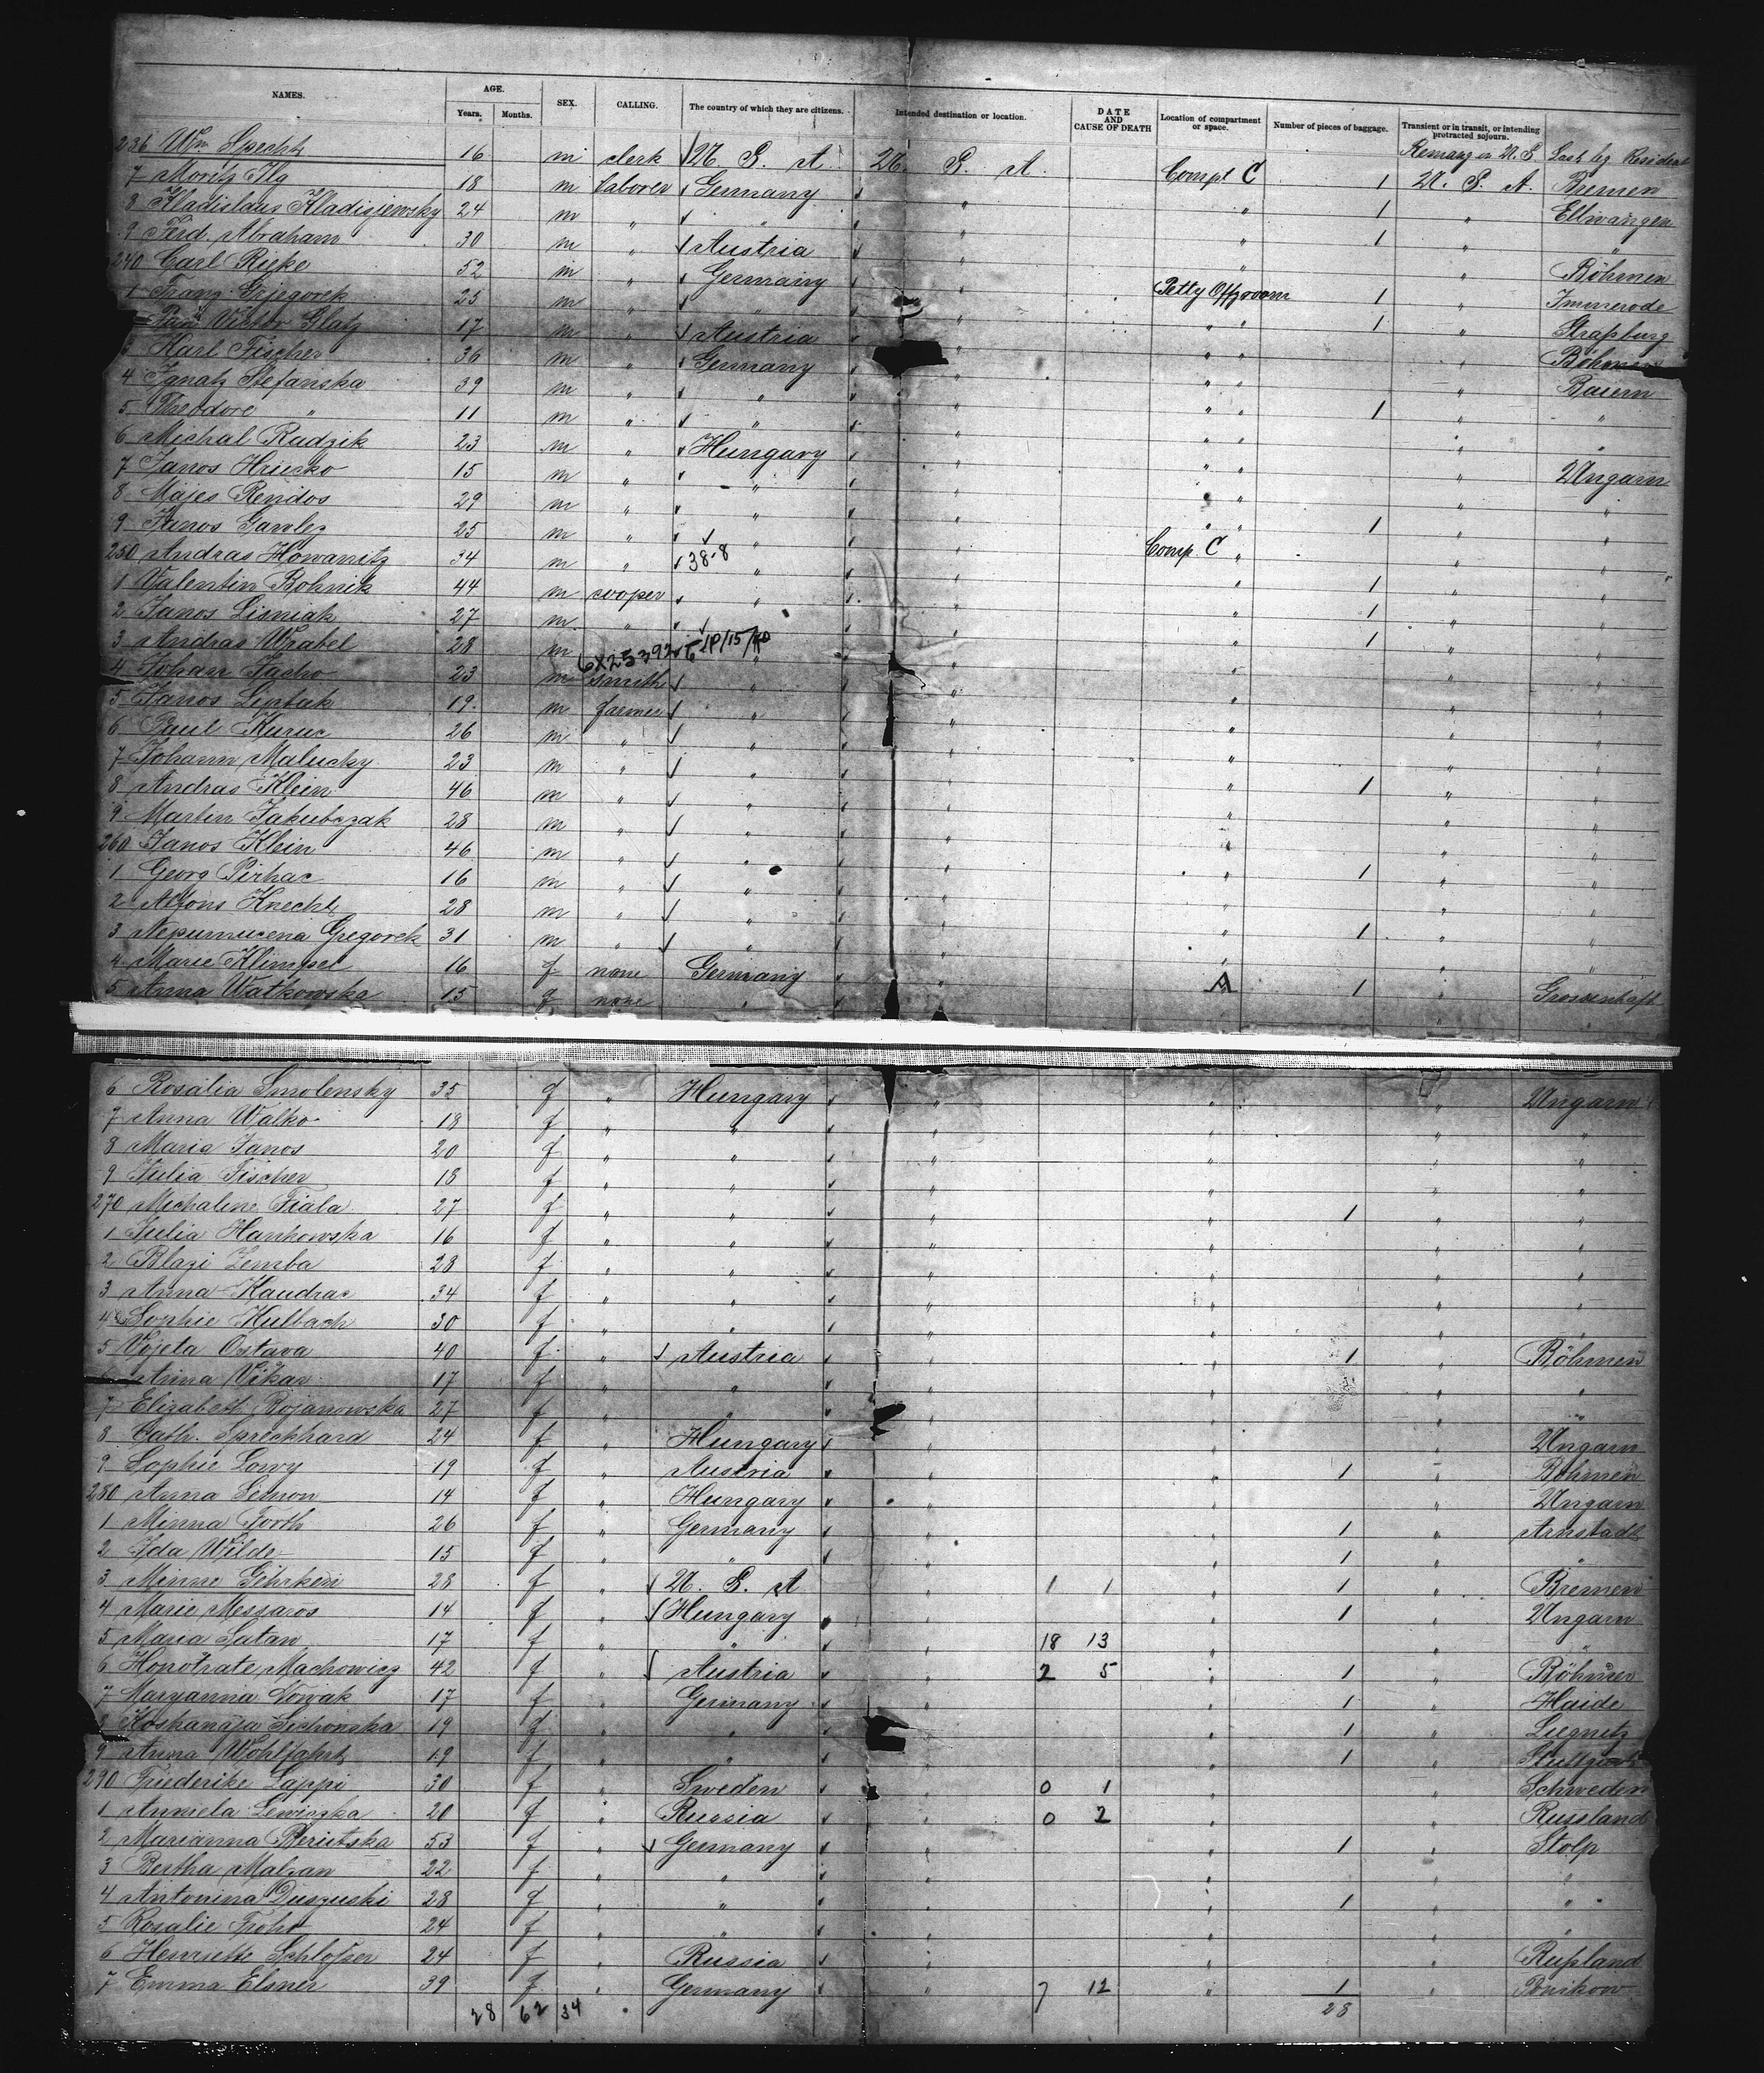 NAMES. AGE. SEX. CALLING. The country of which they are citizens. Intended destination or location. DATE AND CAUSE OF DEATH Location of compartment or space. Number of pieces of baggage. Transient or in transit, or intending protracted sojourn.
Years. Months.
236 Wm Specht 16 m clerk U. S. A. U. S. A. Compt C 1 U. S. A. Bremen
7 Moritz Ilg 18 m laborer Germany " " 1 " Ellwangen
8 Kladislaus Kladisjewsky 24 m " " " " 1 " "
9 Ferd. Abraham 30 m " Austria " " " Böhmen
240 Carl Rieke 52 m " Germany " Petty Offz room 1 " Immerode
1 Franz Grjegorek 25 m " " " " " 1 " Straßburg
Victor Glatz 17 m " Austria " " " " Böhmen
3 Karl Fischer 36 m " Germany " " " " Baiern
4 Ignatz Stefanska 39 m " " " " " 1 " "
5 Theodore " 11 m " " " " " " "
6 Michal Radzik 23 m " Hungary " " " " Ungarn
7 Janos Hriecko 15 m " " " " " " "
8 Majes Rendos 29 m " " " " " 1 " "
9 Janos Gavlez 25 m " " " Comp. C " " "
250 Andras Howanitz 34 m " 38-8 " " " 1 " "
1 Valentin Bohnik 44 m cooper " " " 1 " "
2 Janos Lisniak 27 m " " " " 1 " "
3 Andras Wrabel 28 m " " " " "
6X25392
4 Johan Jacho 23 m smith " " " " "
5 Janos Liptak 19 m farmer " " " " "
6 Paul Kuruc 26 m " " " " " "
7 Johann Malucky 23 m " " " " 1 " "
8 Andras Klein 46 m " " " " " "
9 Martin Jakubczak 28 m " " " " " "
260 Janos Klein 46 m " " " " 1 " "
1 Georg Pirhac 16 m " " " " " "
2 Alfons Knecht 28 m " " " " 1 " "
3 Nepumucena Gregorek 31 m " " " " " "
4 Marie Klimpel 16 f none Germany " A 1 " Grossenhaft
5 Anna Watkowska 15 f none " "
6 Rosalia Smolensky 35 f " Hungary " " " Ungarn
7 Anna Walko 18 f " " " " " "
8 Maria Janos 20 f " " " " " "
9 Julia Fischer 18 f " " " " " "
270 Michaline Fiala 27 f " " " " 1 " "
1 Julia Hankowska 16 f " " " " " "
2 Blazi Zemba 28 f " " " " " "
3 Anna Kaudrac 34 f " " " " " "
4 Sophie Kulbach 30 f " " " " " "
5 Vojeta Ostava 40 f " Austria " " 1 " Böhmen
6 Anna Vikar 17 f " " " " " "
7 Elizabeth Rojanowska 27 f " " " " " "
8 Cath. Spreckhard 24 f " Hungary " " " Ungarn
9 Sophie Lowy 19 f " Austria " " 1 " Böhmen
280 Anna Simon 14 f " Hungary " " " Ungarn
1 Minna Forth 26 f " Germany " " 1 " Arnstadt
2 Ida Wilde 15 f " " " " 1 " "
3 Minne Gehrken 28 f " U. S. A " 1 1 " 1 " Bremen
4 Marie Messaros 14 f " Hungary " " 1 " Ungarn
5 Maria Satan 17 f " " " 18 13 " " "
6 Honotrate Machowicz 42 f " Austria " 2 5 " 1 " Böhmen
7 Maryanna Nowak 17 f " Germany " " 1 " Haide
8 Sichonska 19 f " " " " 1 " Liegnitz
9 Anna Wohlfahrt 19 f " " " " 1 " Stuttgart
290 Friederike Lappi 30 f " Sweden " 0 1 " " Schweden
1 Anniela Lewicska 20 f " Russia " 0 2 " " Russland
2 Marianna Berutska 53 f " Germany " " 1 " Stolp
3 Bertha Malzan 22 f " " " " " "
4 Antonina Duszuski 28 f " " " " 1 " "
5 Rosalie Froht 24 f " " " " " "
6 Henriette Schloßer 24 f " Russia " " " Rußland
7 Emma Elsner 39 f " Germany " 7 12 " 1 "
28 62 34 28